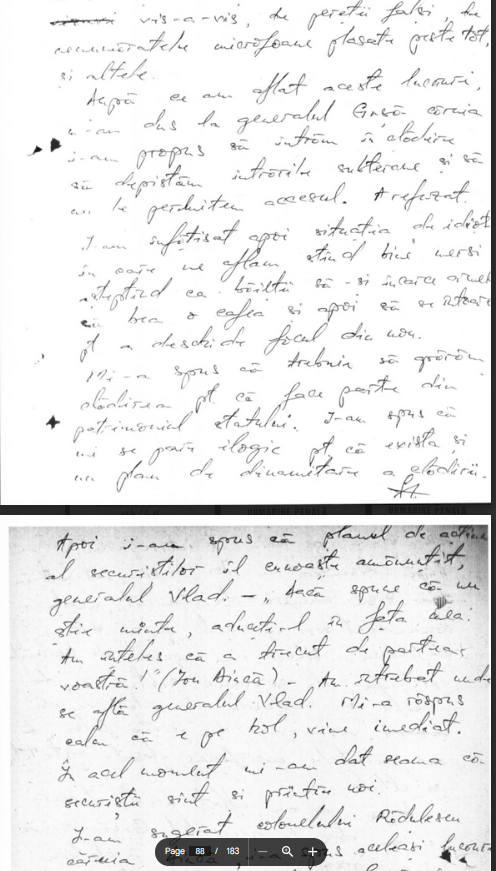 vis-a-vis, de pereții falși, de
nenumăratele microfoane plasate peste tot,
și altele.
După ce am aflat aceste lucruri,
m-am dus la generalul Gușă căruia
i-am propus să intrăm în clădire
să depistăm intrările subterane și să
nu le permitem accesul. A refuzat.
I-am înfățișat apoi situația de idioți
în care ne aflam stînd bine mersi
așteptînd ca băieții să-și încarce
să bea o cafea și apoi să se întoarcă
pt a deschide focul din nou.
Mi-a spus că trebuie să
clădirea pt. că face parte din
patrimoniul statului. I-am spus că
mi se pare ilogic pt. că exista și
un plan de dinamitare a clădirii.
Apoi i-am spus că planul de acțiune
al securiștilor îl cunoaște amănunțit,
generalul Vlad. – „Dacă spune că nu
știe minte, aduceți-l în fața mea.
Am înțeles că a trecut de partea
voastră!" (Ion Dincă) – Am întrebat unde
se află generalul Vlad. Mi-a răspuns
calm că e pe hol, vine imediat.
În acel moment mi-am dat seama că
securiștii sînt și printre noi.
I-am sugerat colonelului Rădulescu
căruia i-a spus aceleași lucruri
Page 88 / 183